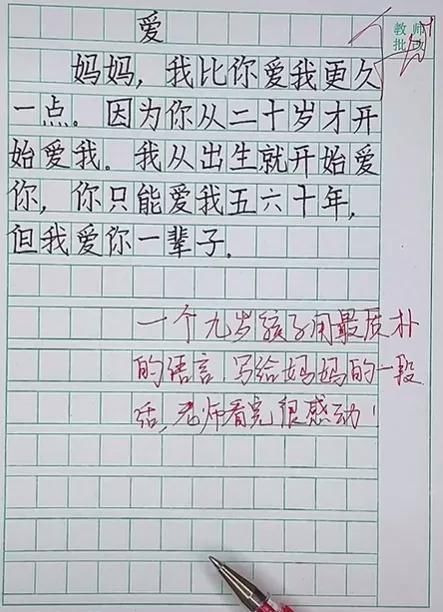 爱
教师
批改
妈妈，我比你爱我更久
一点。因为你从二十岁才开
始爱我。我从出生就开始爱
你，你只能爱我五六十年，
但我爱你一辈子。
一个九岁孩子用最质朴
的语言，写给妈妈的一段
话，老师看完很感动！